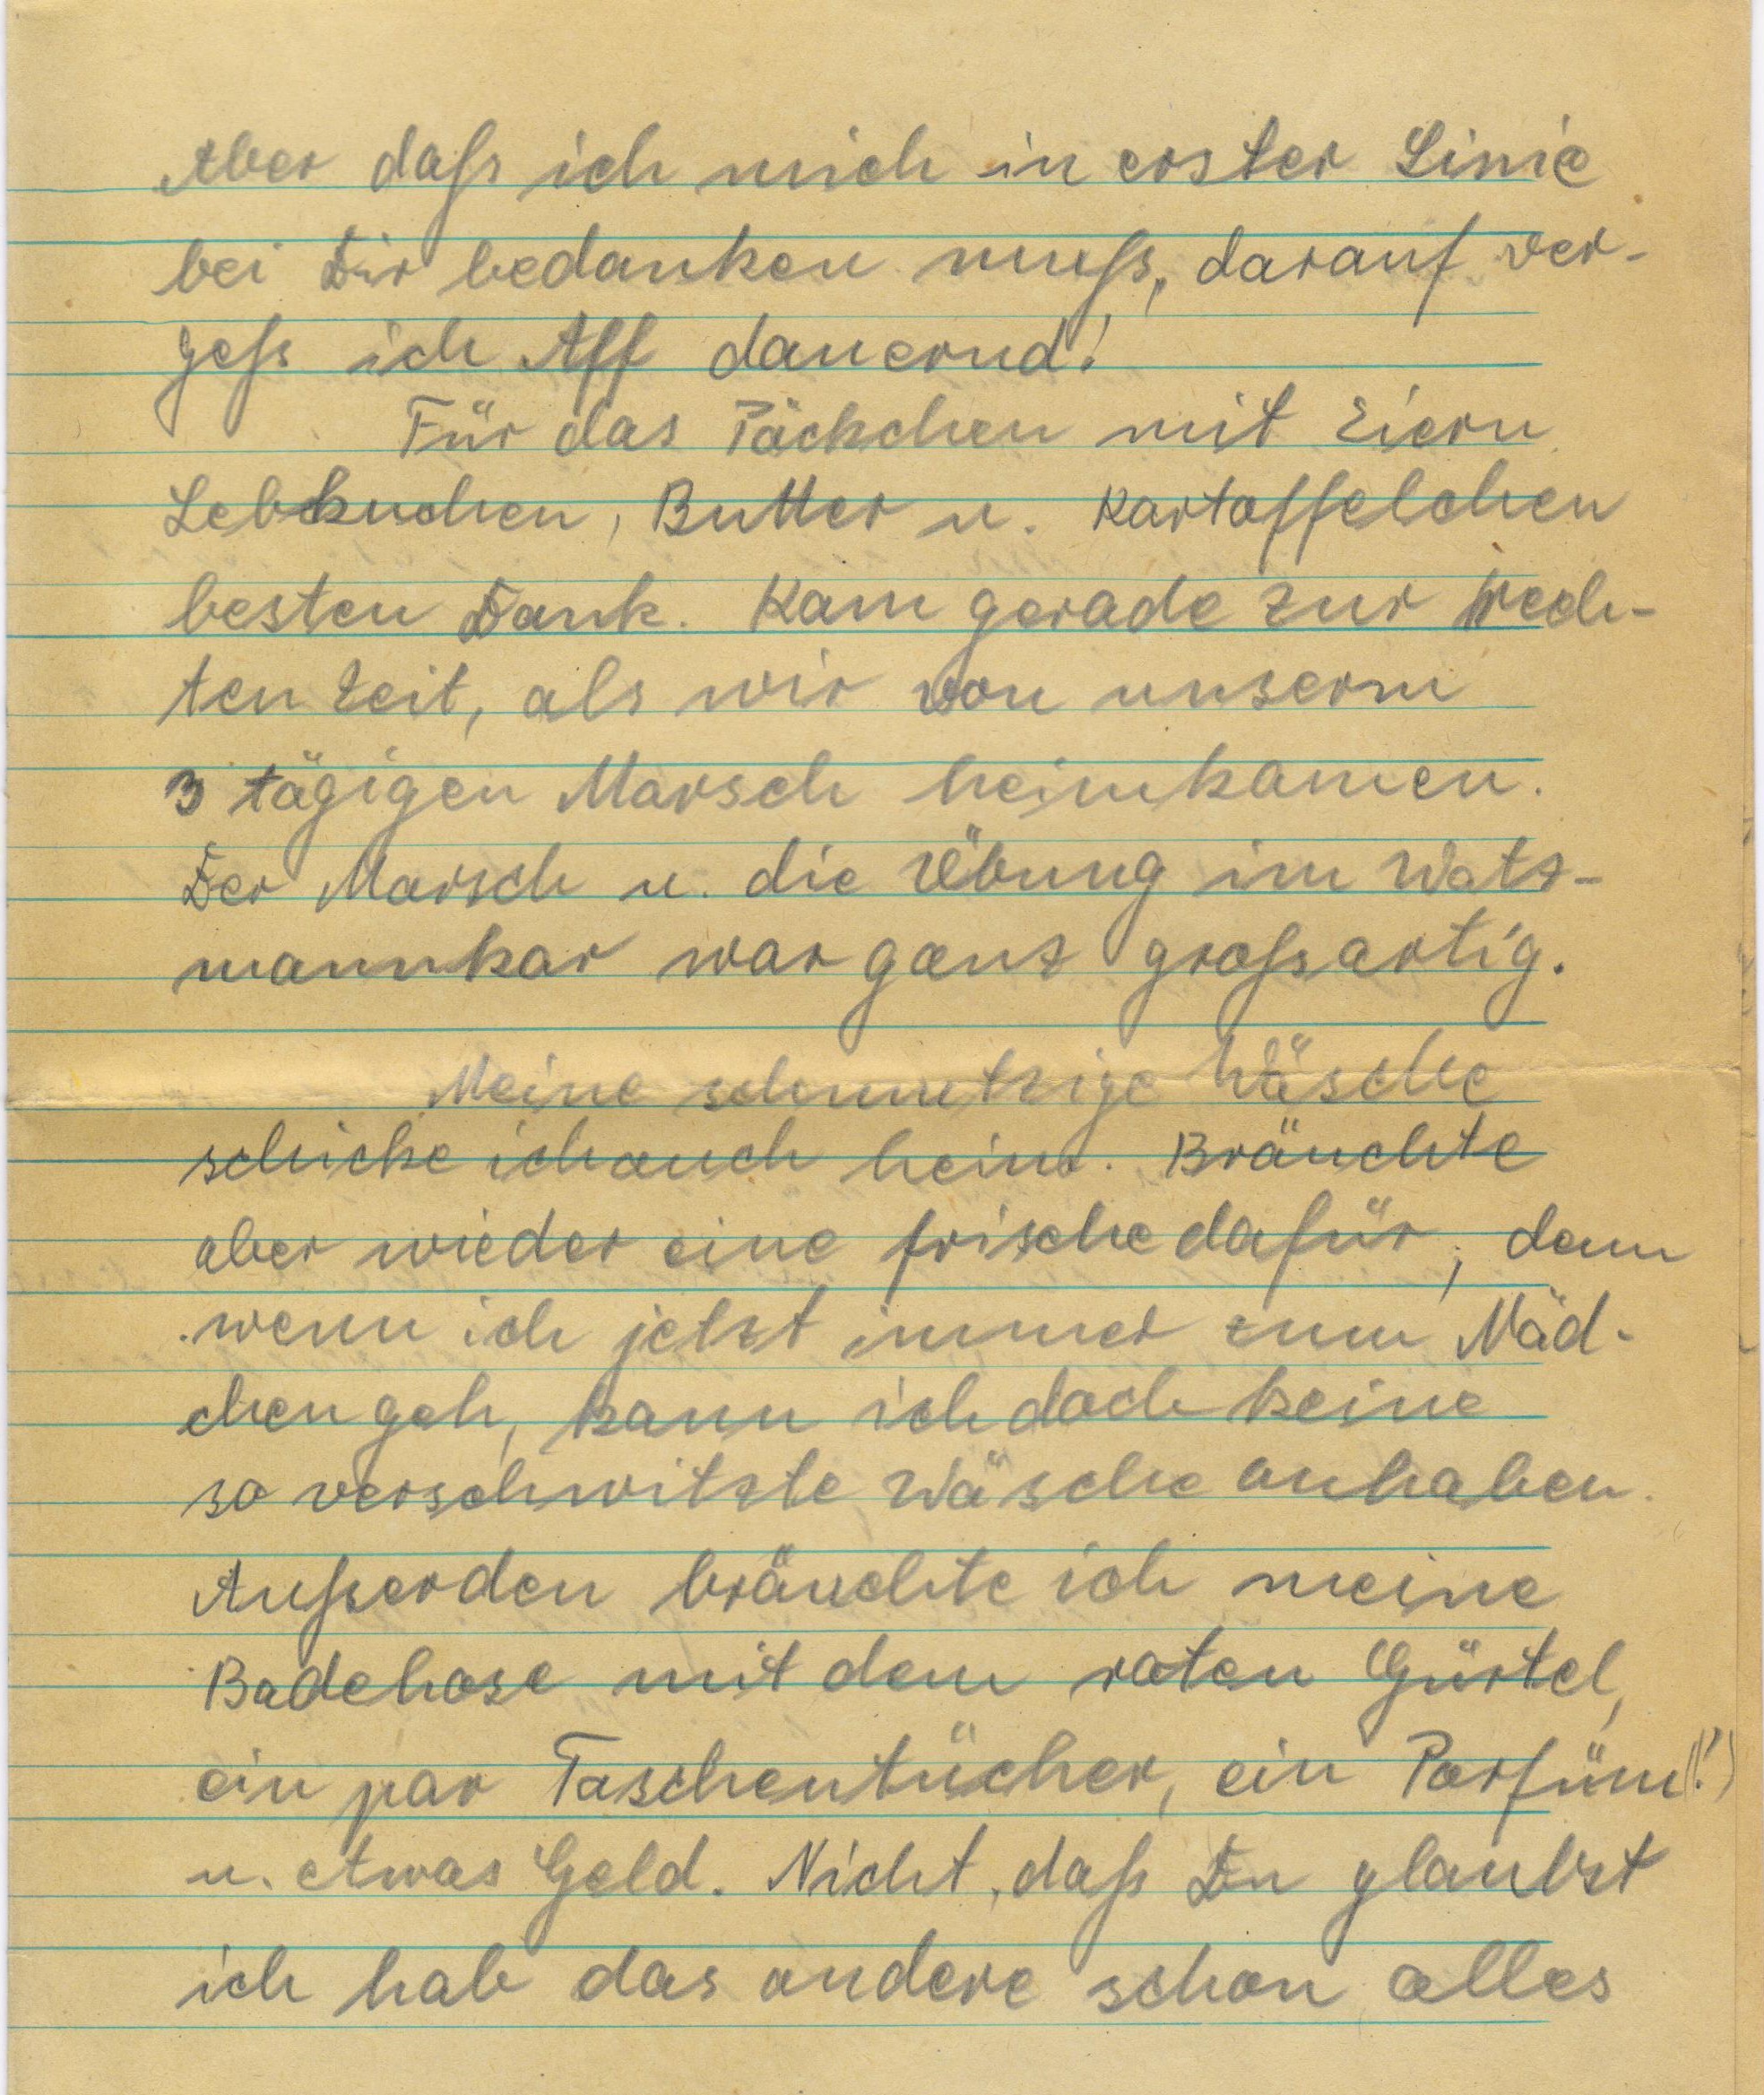 Aber daß ich mich in erster Linie
bei Dir bedanken muß, darauf ver-
geß ich Aff dauernd!
Für das Päckchen mit Eiern
Lebkuchen, Butter u. Kartoffelchen
besten Dank. Kam gerade zur rech-
ten Zeit, als wir von unserm
3 tägigen Marsch heimkamen.
Der Marsch u. die Übung im Watz-
mannkar war ganz großartig.
Meine schmutzige Wäsche
schicke ich auch heim. Bräuchte
aber wieder eine frische dafür, denn
wenn ich jetzt immer zum Mäd-
chen geh, kann ich doch keine
so verschwitzte Wäsche anhaben.
Außerden bräuchte ich meine
Badehose mit dem roten Gürtel,
ein par Taschentücher, ein Parfüm(!)
u. etwas Geld. Nicht, daß Du glaubst
ich hab das andere schon alles